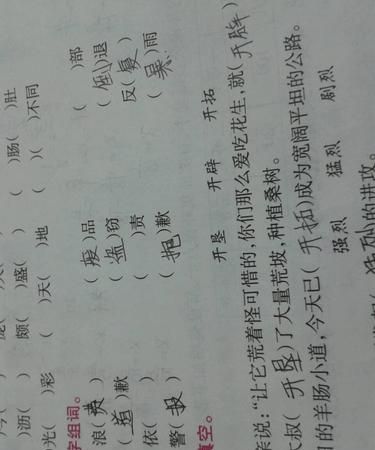 )沥( ) 颇( )盛( ) ( )肠( )肚
光( )彩 ( )天( )地 ( )( )不同
字组词。
浪(费) (废)品 ( )部
( )歉 (盗)窃 (倒)退
依( ) ( )责 反(复)
警(报) (抱)歉 ( )雨
填空。
开垦 开辟 开拓
亲说:“让它荒着怪可惜的,你们那么爱吃花生,就(开辟)
大叔(开垦)了大量荒坡,种植桑树。
日的羊肠小道,今天已(开拓)成为宽阔平坦的公路。
强烈 猛烈 剧烈
猛烈的进攻。